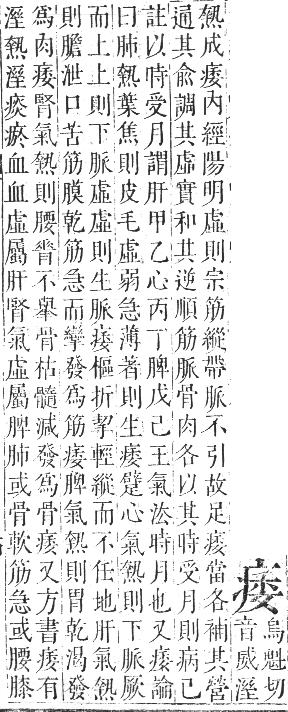 痿
烏魁切
音威溼
熱成痿内經陽明虛則宗筋縱帶脈不引故足痿當各補其營
通其兪調其虛實和其逆順筋脈骨肉各以其時受月則病已
註以時受月謂肝甲乙心丙丁脾戊己王氣法時月也又痿論
曰肺熱葉焦則皮毛虛弱急薄著則生痿躄心氣熱則下脈厥
而上上則下脈虛虛則生脈痿樞折挈輕縱而不任地肝氣熱
則膽泄口苦筋膜乾筋急而攣發爲筋痿脾氣熱則胃乾渴發
爲肉痿腎氣熱則腰脊不舉骨枯髓減發爲骨痿又方書痿有
溼熱溼痰瘀血血虛屬肝腎氣虛屬脾肺或骨軟筋急或腰膝